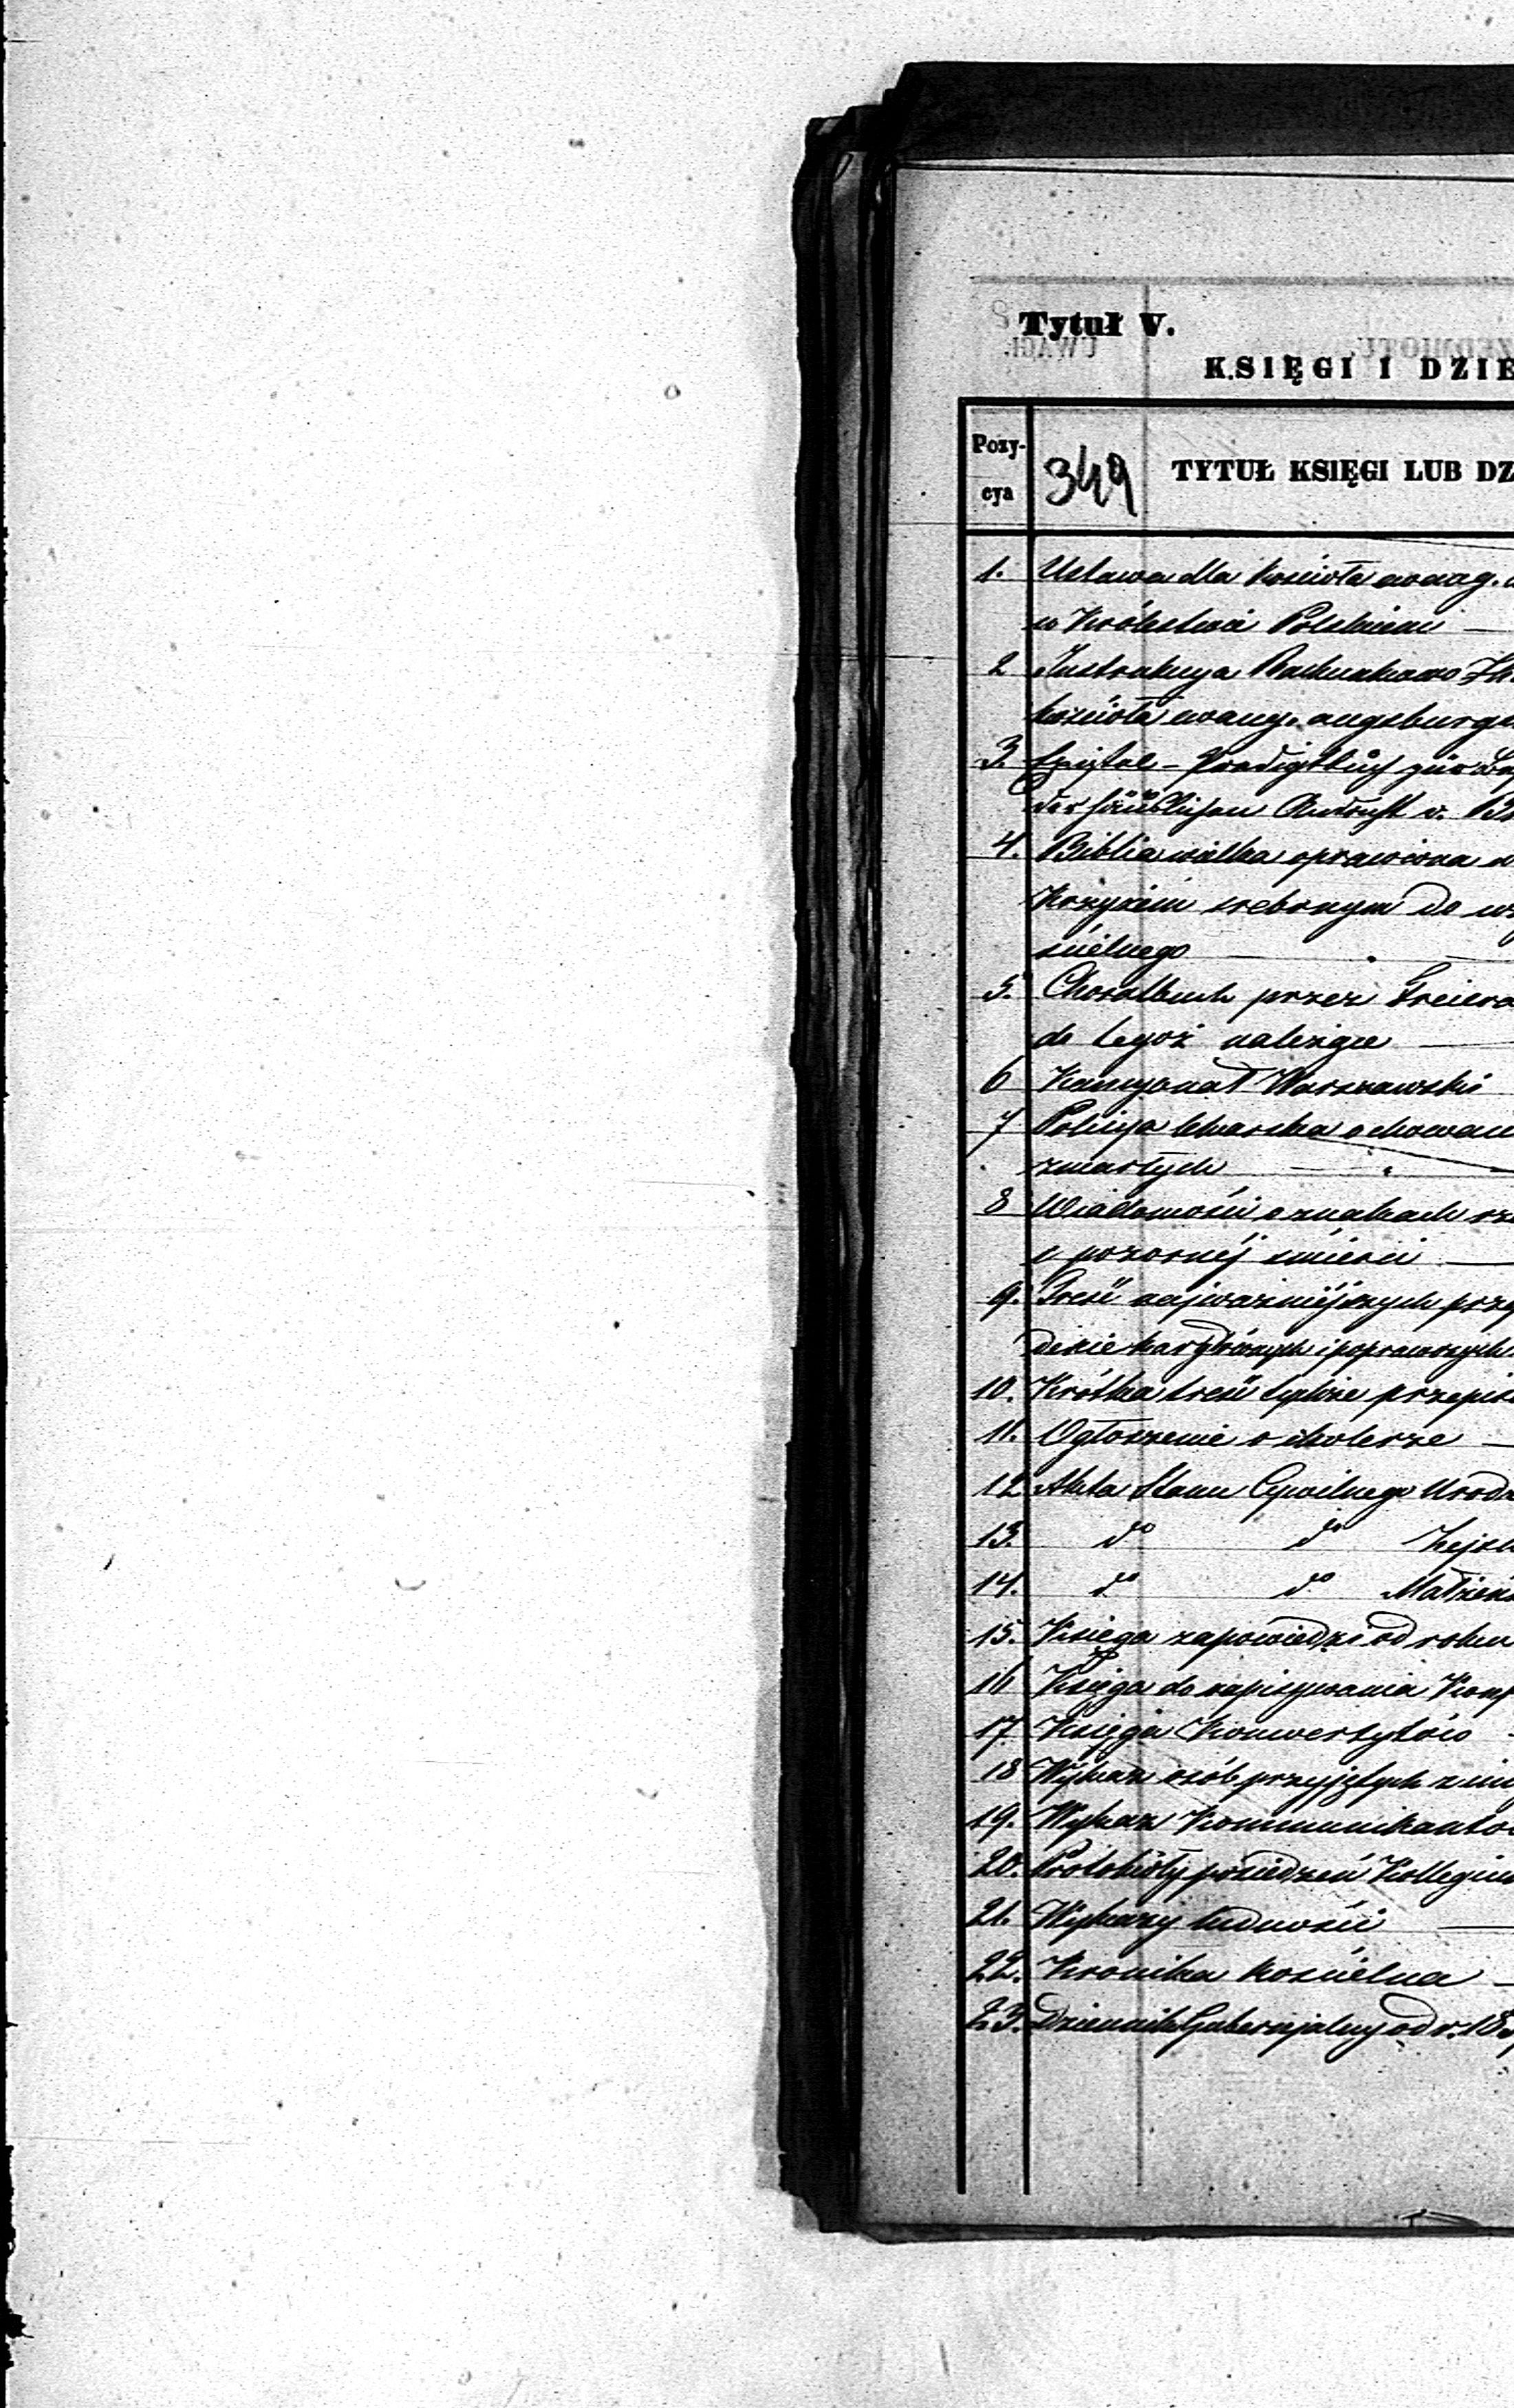 Tytuł V.
KSIĘGI I DZIE
Pozy-
cya
349
TYTUŁ KSIĘGI LUB DZ
1. Ustawa dla kościoła ewang.
w Królestwie Polskiem
2 Instrukcya Rachunkowo
kościoła ewang. augsburgs
3. Epistel-Predigtbuch zur
der häuslichen Andacht v.
4. Biblia wielka oprawiona w
Krzyżem srebrnym do
ścielnego
5. Choralbuch przez Freiera
do tegoż należące
6 Kancyonał Warszawski
7 Policya lekarska o chowan
zmarłych
8 Wiadomości o znakach
o pozornéj śmierci
9. Treść najważniejszych prze
deksie kar głównych i poprawczych
10. Krótka treść tychże przepis
11. Ogłoszenie o cholerze
12 Akta Stanu Cywilnego Urodz
13. do do Zejśc
14. do do Małżeńs
15. Księga zapowiedzi od roku
16 Księga do zapisywania Konf
17 Księga Konwertytów
18 Wykaz osób przyjętych z inn
19. Wykaz Kommunikantó
20. Protokóły posiedzeń Kollegiu
21. Wykazy ludności
22. Kronika kościelna
23. Dziennik Gubernjalny od r. 18